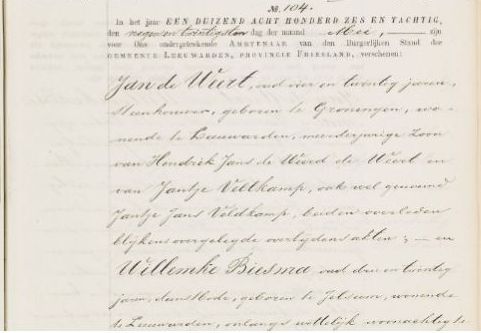 No. 104.
In het jaar EEN DUIZEND ACHT HONDERD ZES EN TACHTIG,
den negen en twintigsten dag der maand Mei, zijn
voor Ons ondergeteekende AMBTENAAR van den Burgerlijken Stand der
GEMEENTE LEEUWARDEN, PROVINCIE FRIESLAND, verschenen:
Jan de Weert, oud vier en twintig jaren,
steenhouwer, geboren te Groningen, wo-
nende te Leeuwarden, meerderjarige zoon
van Hendrik Jans de Weerd de Weert en
van Jantje Veltkamp, ook wel genaamd
Jantje Jans Veldkamp, beiden overleden
blijkens overgelegde overlijdens akten; — en
Willemke Biesma, oud drie en twintig
jaren, dienstbode, geboren te Jelsum, wonende
te Leeuwarden, onlangs wettelijk woonachtig te